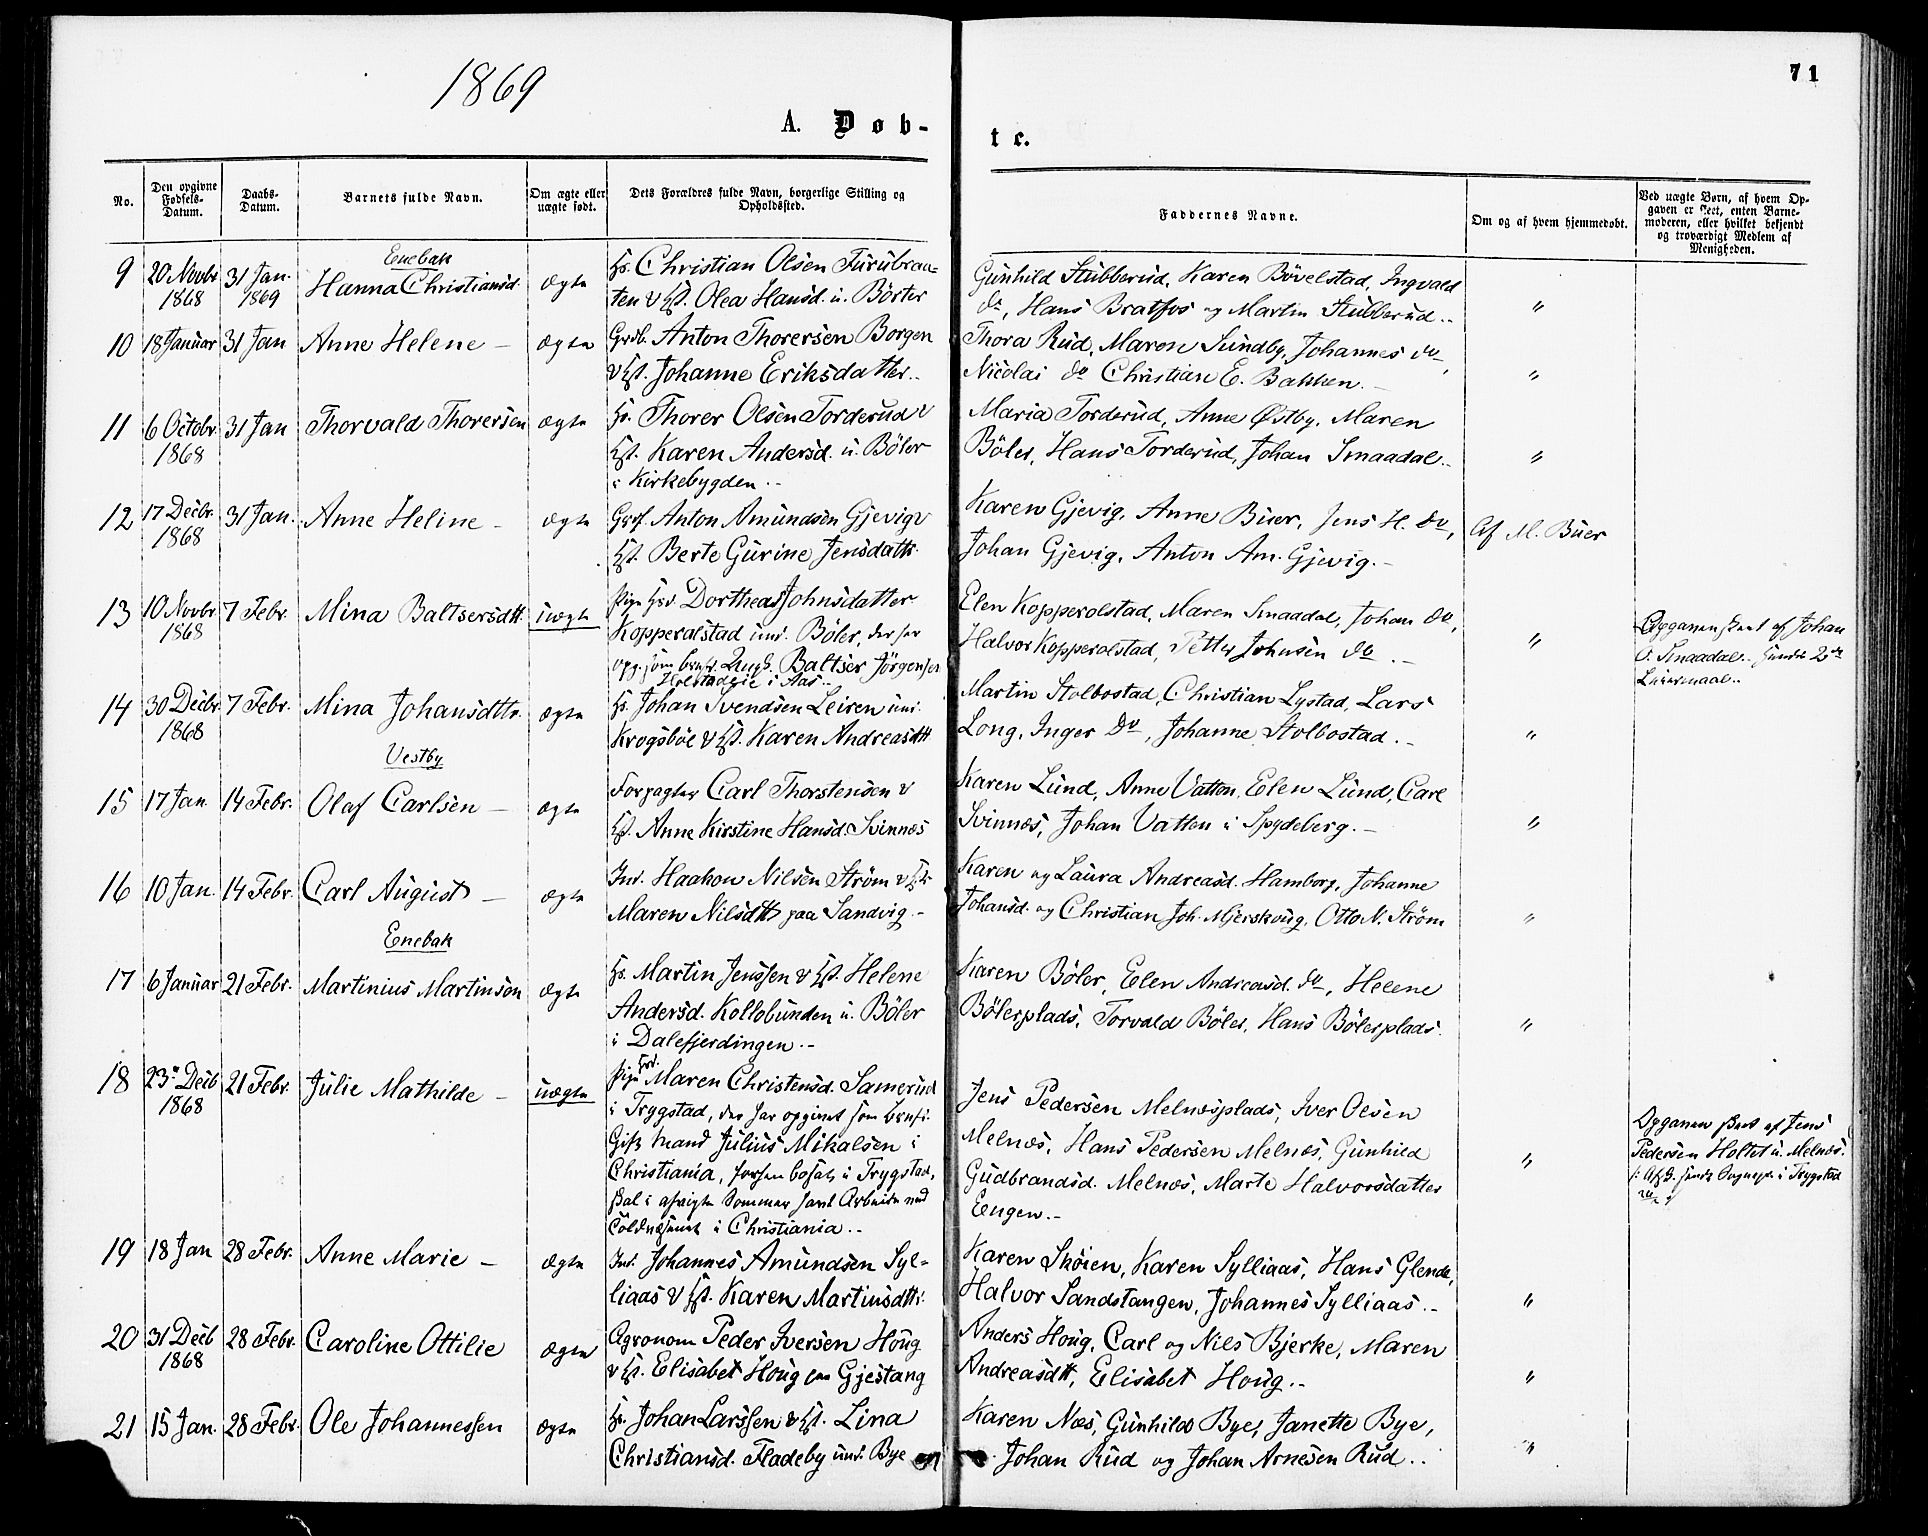 1869
71
A. Døb-
te.
No.
Den opgivne Fødsels-Datum.
Daabs-Datum.
Barnets fulde Navn.
Om ægte eller uægte født.
Dets Forældres fulde Navn, borgerlige Stilling og Opholdssted.
Faddernes Navne.
Om og af hvem hjemmedøbt.
Ved uægte Børn, af hvem Op-
gaven er skeet, enten Barne-
moderen, eller hvilket bekjendt
og troværdigt Medlem af
Menigheden.
Enebak
9 20 Novbr 1868 31 Jan. 1869 Hanna Christiansd. ægte
Hs. Christian Olsen Furubraa-
ten & Hst. Olea Hansd. u. Börter
Gunhild Stubberud, Karen Bövelstad, Ingvald
do, Hans Bratfos og Martin Stubberud..
"
10 18 Januar 31 Jan Anne Helene — ægte
Grdb. Anton Thorersen Borgen
& Hst. Johanne Eriksdatter..
Thora Rud, Maren Sundby, Johannes do,
Nicolai do Christian E. Bakken. —
"
11 6 Octobr 1868 31 Jan Thorvald Thorersen ægte
Hs. Thorer Olsen Torderud &
Hst. Karen Andersd. u. Böler
i Kirkebygden..
Maria Torderud, Anne Østby, Maren
Böler, Hans Torderud, Johan Smaadal..
"
12 17 Decbr. 1868 31 Jan. Anne Heline — ægte
Anton Amundsen Gjevig &
Hst. Berte Gurine Jensdattr.
Karen Gjevig, Anne Buer, Jens H. do,
Johan Gjevig, Anton Am. Gjevig. —
Af M. Buer
13 10 Novbr 1868 7 Febr. Mina Baltsersdtt. uægte
Pige Dorthea Johnsdatter
Kopperolstad und. Böler, der har
opg. som Ungk. Baltser Jörgensen
i Aas..
Elen Kopperolstad, Maren Smaadal, Johan do,
Halvor Kopperolstad, Petter Johnsen do. —
"
Opgaven skeet af Johan
O. Smaadal.. hendes 2det
Leiermaal..
14 30 Decbr. 1868 7 Febr. Mina Johansdttr. ægte
Hs. Johan Svendsen Leiren und.
Krogsböl & Hst. Karen Andreasdtt
Martin Stolbostad, Christian Lystad, Lars
Long, Inger do, Johanne Stolbostad. —
"
Vestby
15 17 Jan 14 Febr. Olaf Carlsen — ægte
Forpagter Carl Thorstensen &
Hst. Anne Kirstine Hansd. Svinnæs
Karen Lund, Anne Vatten, Elen Lund, Carl
Svinnæs, Johan Vatten i Spydeberg. —
"
16 10 Jan. 14 Febr. Carl August — ægte
Ind. Haakon Nilsen Ström & Hst.
Maren Nilsdtt paa Sandvig. —
Karen og Laura Andreasd. Hamborg, Johanne
Johansd. og Christian Joh. Mjerskoug, Otto N. Ström
"
Enebak
17 6 Januar 21 Febr. Martinius Martinson ægte
Hs. Martin Jenssen & Hst. Helene
Andersd. Kollobunden u. Böler
i Dalefjerdingen. —
Karen Böler, Elen Andreasd. do, Helene
Bölerplads, Torvald Böler, Hans Bölerplads.
"
18 23 Decb 1868 21 Febr. Julie Mathilde — uægte
Pige Maren Christensd. Samerud
i Trygstad, der har opgivet som
Gift Mand Julius Mikalsen i
Christiania, forhen bosat i Trygstad,
skal i afvigte Sommer havt Arbeide ved
Toldvæsenet i Christiania..
Jens Pedersen Melnæsplads, Iver Olsen
Melnæs, Hans Pedersen Melnæs, Gunhild
Gudbrandsd. Melnæs, Marte Halvorsdatter
Engen. —
"
Opgaven skeet af Jens
Pedersen Holtet u. Melnæs.
i Trygstad
19 18 Jan 28 Febr. Anne Marie — ægte
Ind. Johannes Amundsen Syl-
liaas & Hst. Karen Martinsdttr.
Karen Sköien, Karen Sylliaas, Hans Glende,
Halvor Sandstangen, Johannes Sylliaas. —
"
20 31 Decb 1868 28 Febr. Caroline Ottilie ægte
Agronom Peder Iversen Houg
& Hst. Elisabet Houg paa Gjestang
Anders Houg, Carl og Nils Bjerke, Maren
Andreasdtt, Elisabet Houg. —
"
21 15 Jan. 28 Febr. Ole Johannessen ægte
Hs. Johan Larssen & Hst. Lina
Christiansd. Fladeby und. Bye
Karen Næs, Gunhild Bye, Janette Bye,
Johan Rud og Johan Arnesen Rud..
"